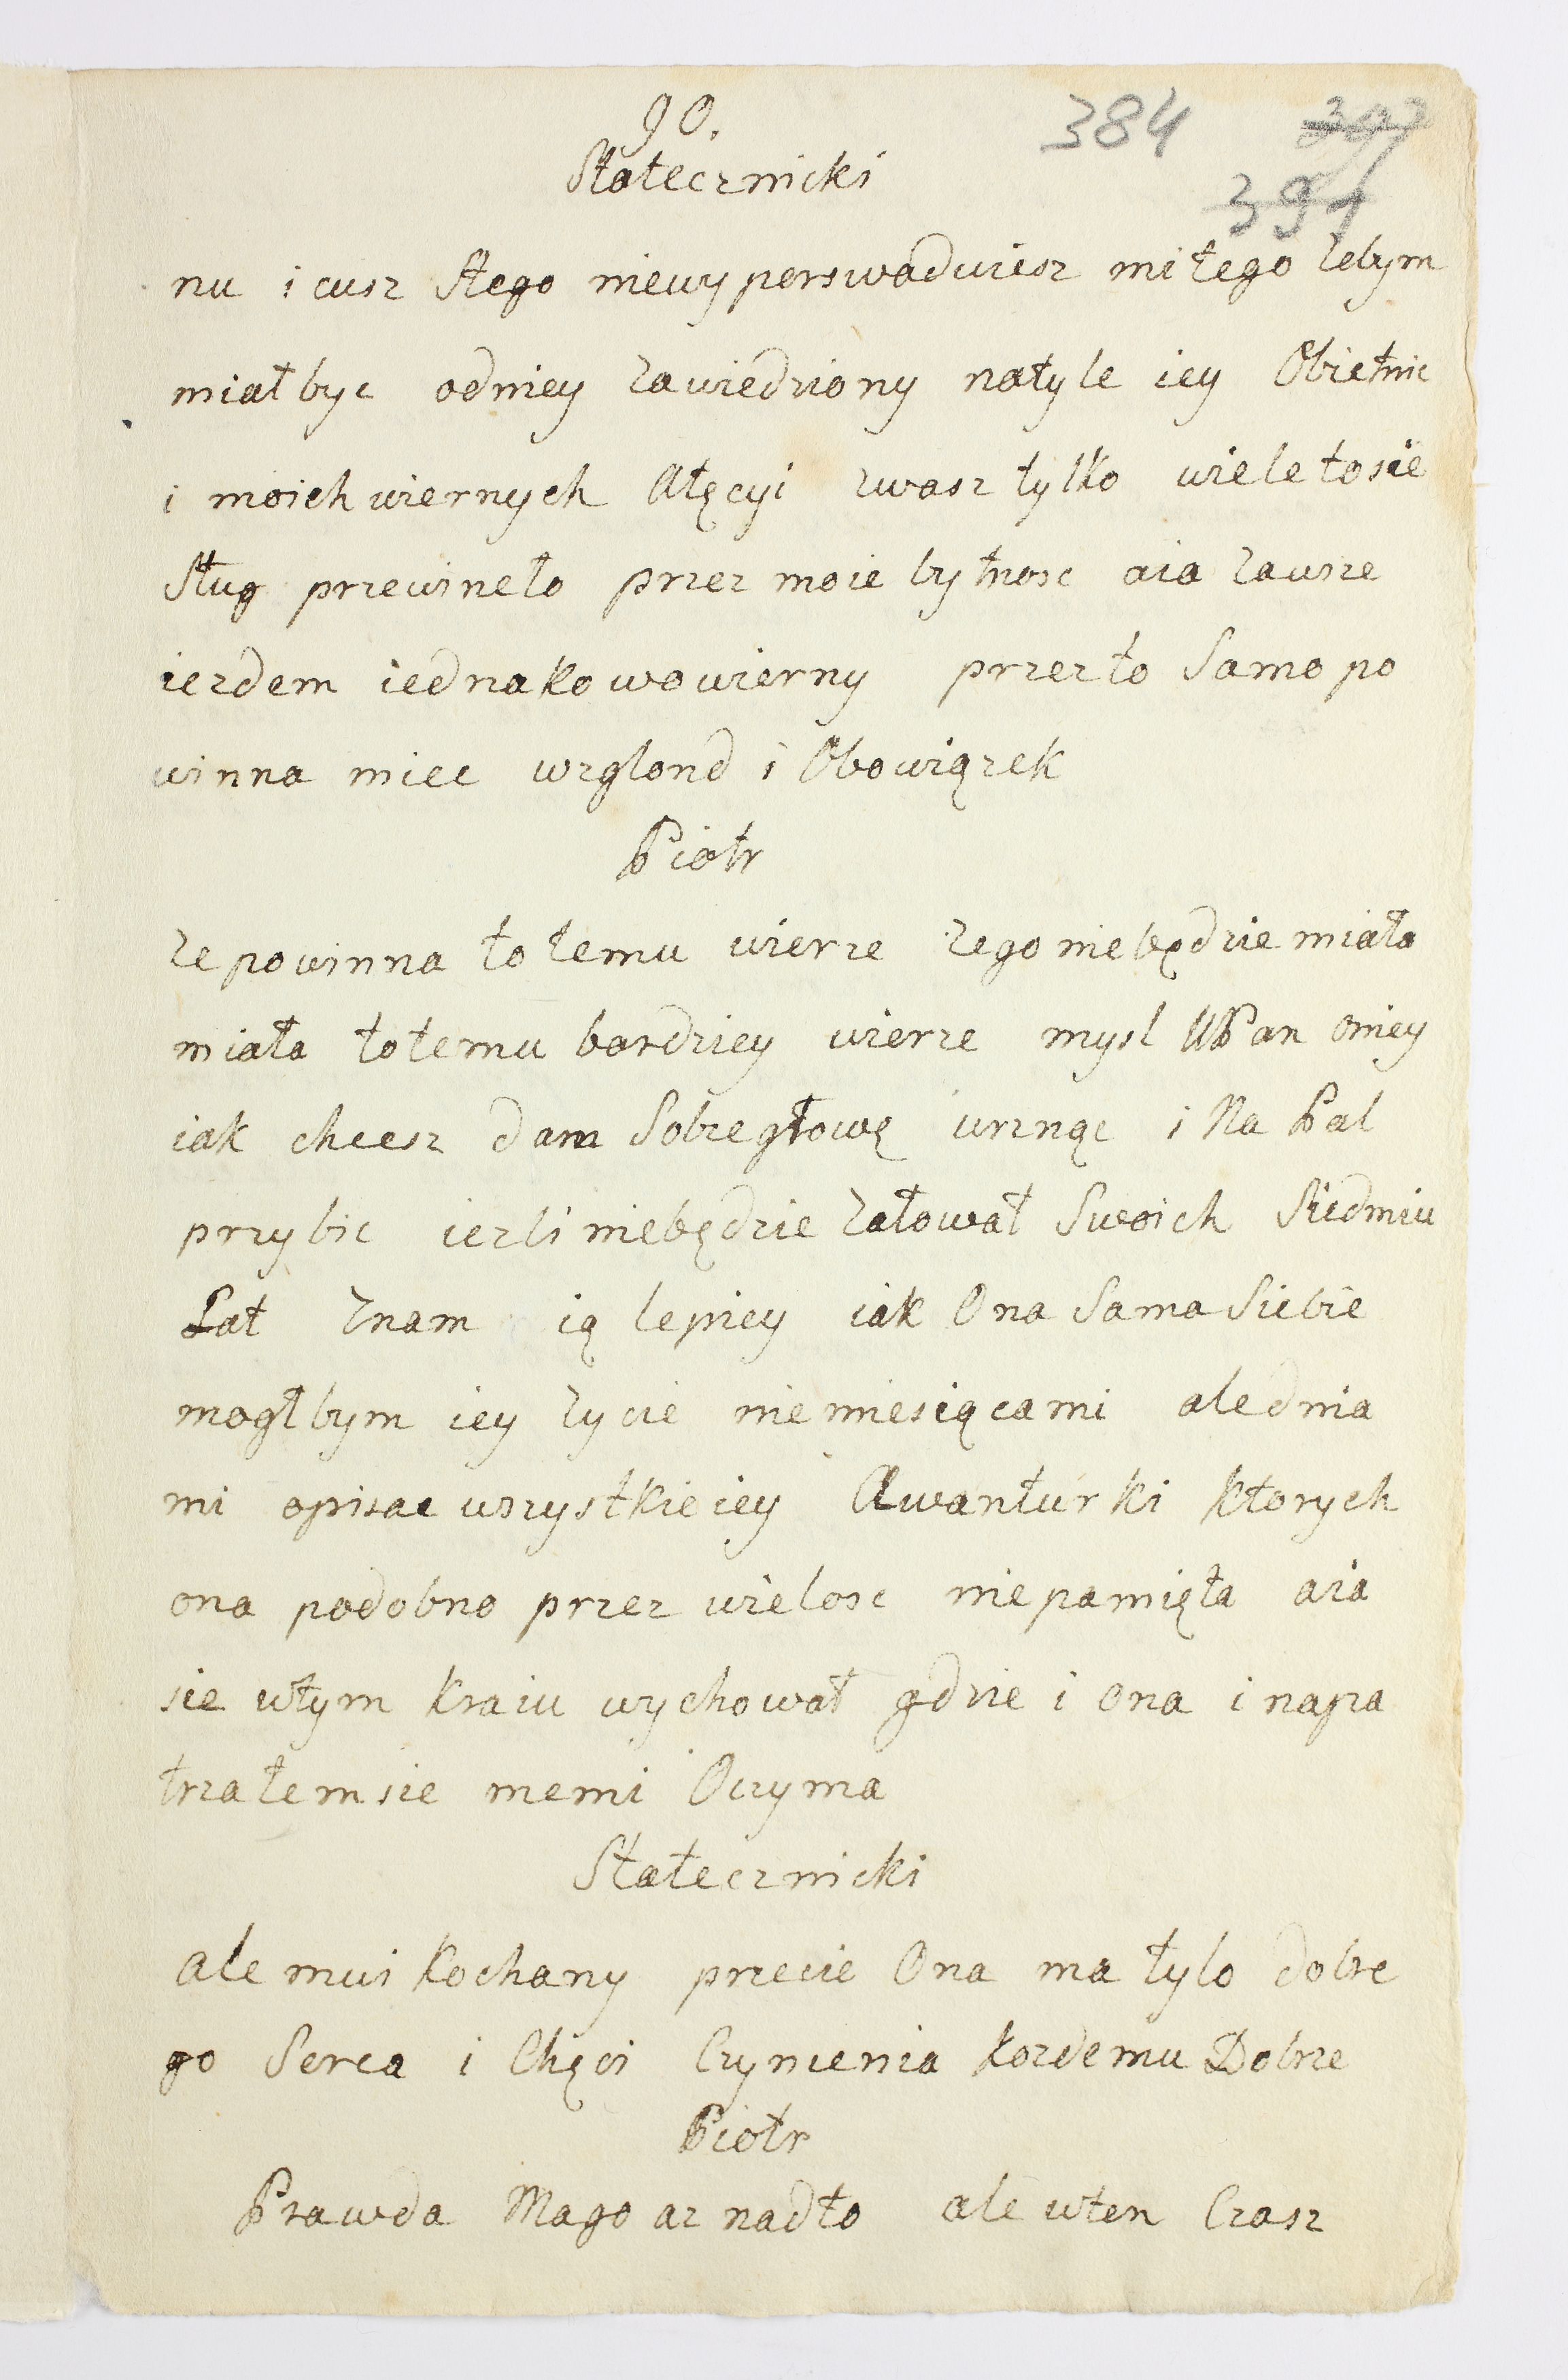 90.
384
397
391
Statecznicki
nu i cusz stego niewyperswaduiesz mi tego zebym
miał byc odniey zawiedziony natyle iey Obietnic
i moich wiernych Atęcyi zwasz tylko wiele tosie
Sług przewineło przez moie bytnosc aia zawsze
iezdem iednakowowierny przezto Samo po
winna miec wzglond i Obowiązek
Piotr
ze powinna to temu wierze zego niebędzie miała
miała to temu bardziey wierze mysl WPan oniey
iak chcesz dam Sobiegłowę urznąc i Na Pal
przybic iezli niebędzie załował Swoich Siedmiu
Lat znam ią lepiey iak Ona Sama Siebie
mogłbym iey zycie niemiesiącami alednia
mi opisac wszystkieiey Awanturki ktorych
ona podobno przez wielosc niepamięta aia
sie wtym kraiu wychował gdzie i ona i napa
trzałemsie memi Oczyma
Statecznicki
ale mui kochany przecie Ona ma tylo dobre
go Serca i Chęci Czynienia kozdemu Dobrze
Piotr
Prawda Mago az nadto ale wten Czasz